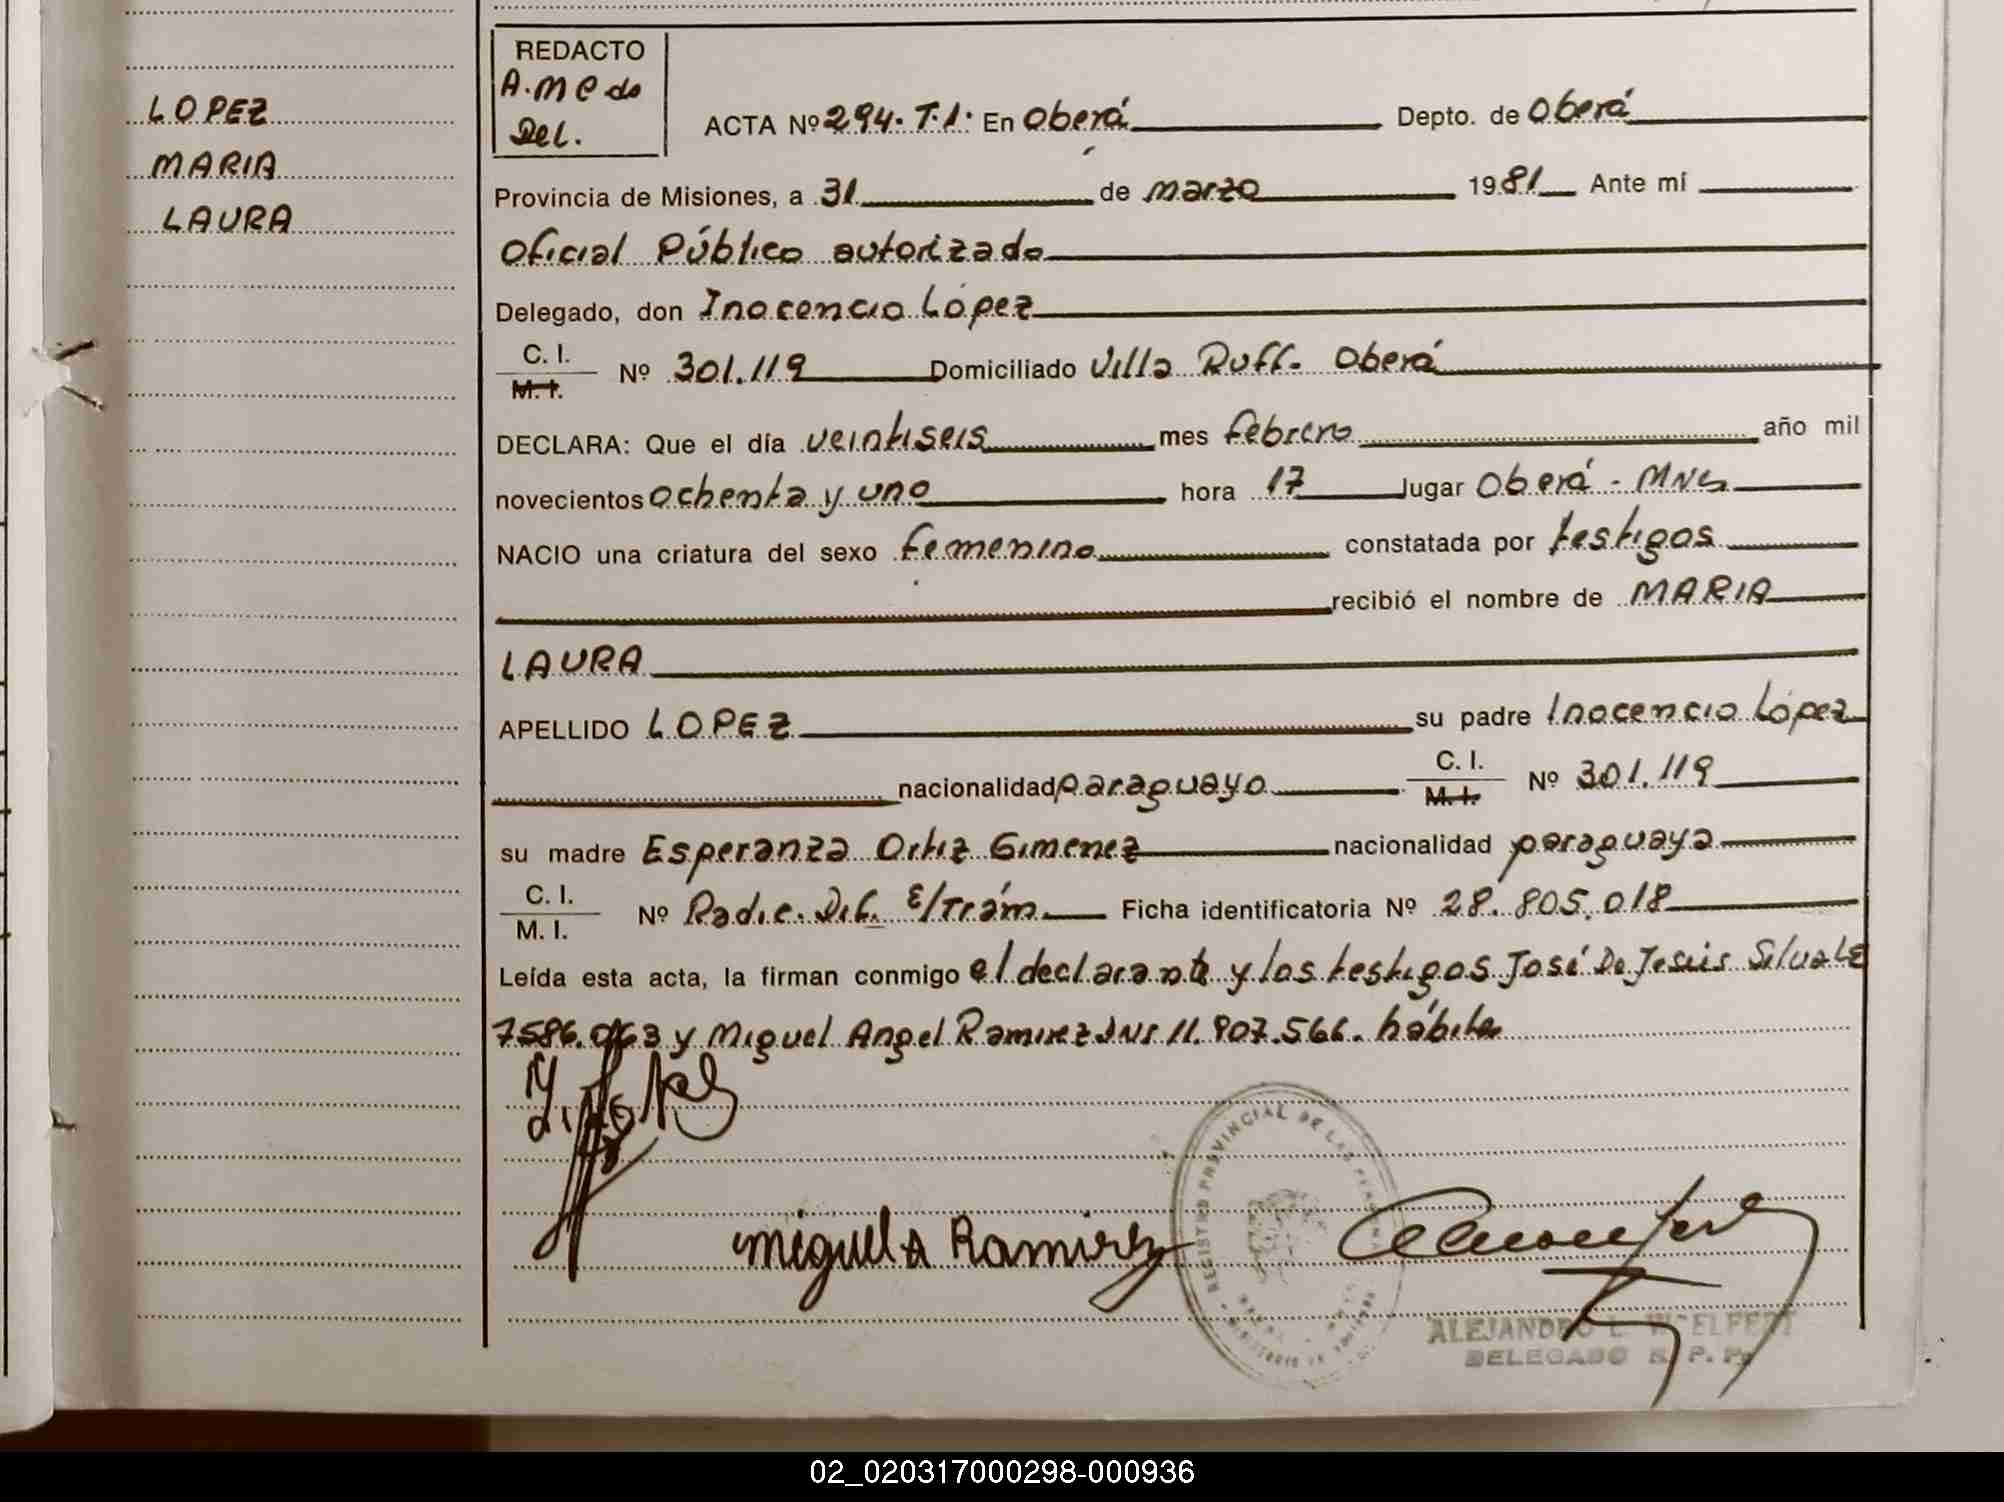 LOPEZ
MARIA
LAURA
REDACTO
A.M C de
Del.
ACTA Nº 294. T.1. En Oberá Depto. de Oberá
Provincia de Misiones, a 31 de marzo 1981 Ante mí
Oficial Público autorizado
Delegado, don Inocencio López
C. I.
M. I. Nº 301.119 Domiciliado Villa Ruff. Oberá
DECLARA: Que el día veintiseis mes febrero año mil
novecientos ochenta y uno hora 17 lugar Oberá - Mns
NACIO una criatura del sexo femenino constatada por testigos
recibió el nombre de MARIA
LAURA
APELLIDO LOPEZ su padre Inocencio López
nacionalidad paraguayo C. I.
M. I. Nº 301.119
su madre Esperanza Ortiz Gimenez nacionalidad paraguaya
C. I.
M. I. Nº Radic. Def. E/Trám. Ficha identificatoria Nº 28.805.018
Leída esta acta, la firman conmigo el declarante y los testigos José De Jesús Silva LE
7586.063 y Miguel Angel Ramirez DNI 11.907.566. hábiles
Miguel A Ramirez
REGISTRO PROVINCIAL DE LAS PERSONAS
ALEJANDRO L.
DELEGADO R. P. P.
02_020317000298-000936